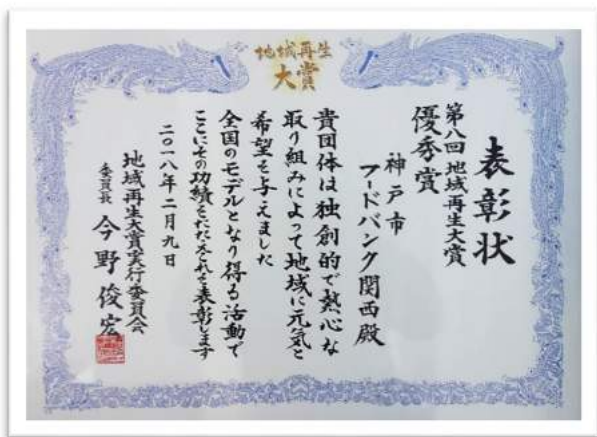 地域再生
大賞
表彰状
第八回 地域再生大賞
優秀賞
神戸市
フードバンク関西殿
貴団体は独創的で熱心な
取り組みによって地域に元気と
希望を与えました
全国のモデルとなり得る活動で
ここにその功績をたたえこれを表彰します
二〇一八年二月九日
地域再生大賞実行委員会
委員長 今野俊宏